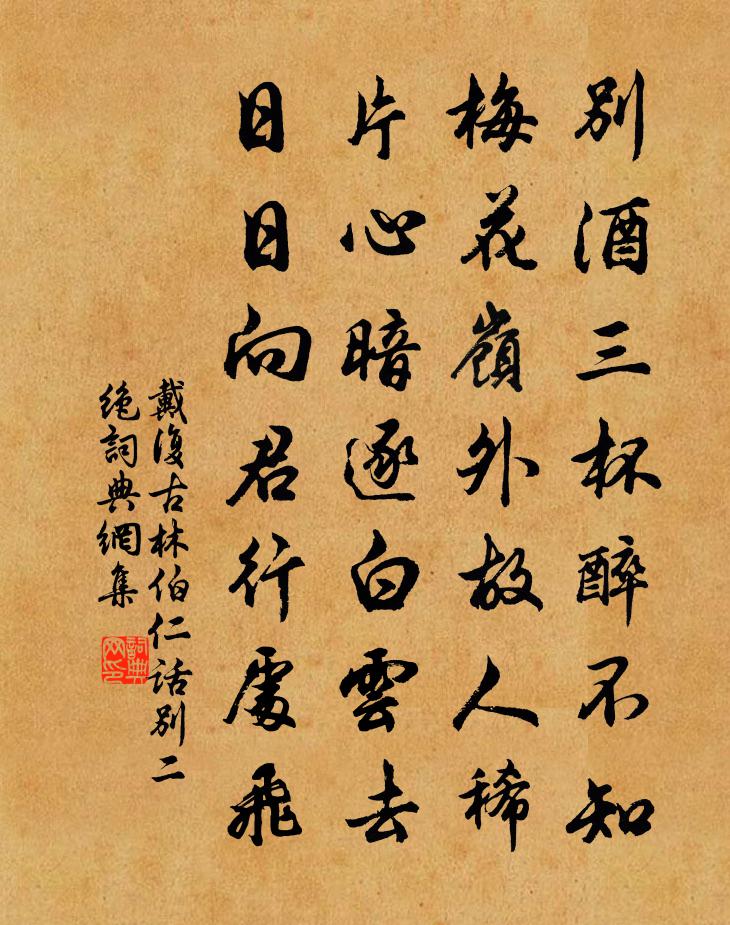 別酒三杯醉不知
梅花嶺外故人稀
片心暗逐白雲去
日日向君行處飛
戴復古林伯仁話別二
絶詞典網集
詞典網印